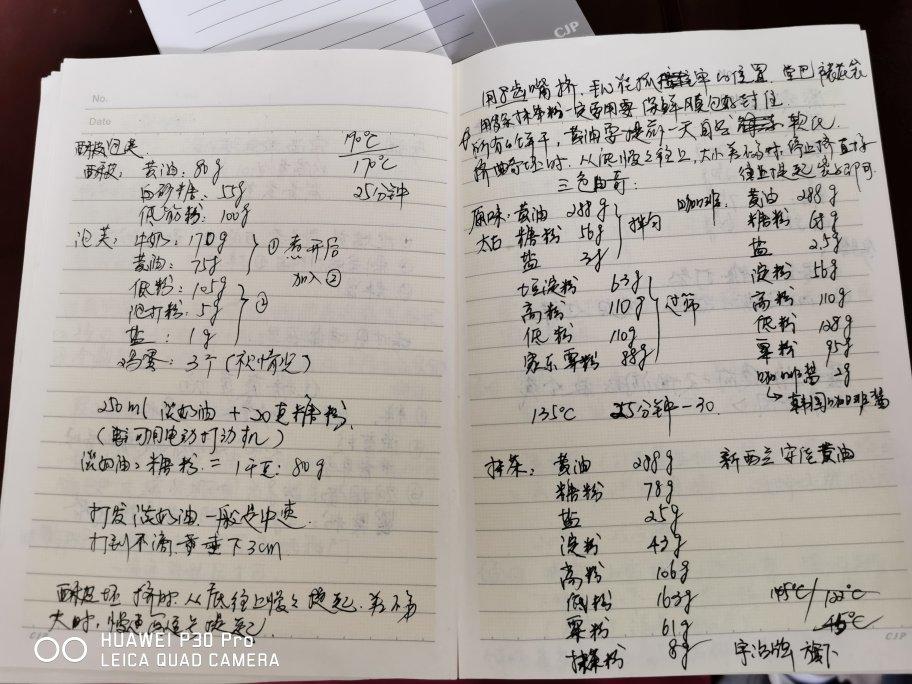 CJP
No.
Date
酥皮泡芙
190℃
170℃
25分钟
酥皮: 黄油: 80g
白砂糖: 55g
低筋粉: 100g
泡芙: 牛奶: 170g
黄油: 75g
① 煮开后
加入②
低粉: 105g
泡打粉: 5g
盐: 1g
②
鸡蛋: 3个 (视情况)
250ml 淡奶油 + 20克糖粉
(可用电动打动机)
淡奶油: 糖粉 = 1千克: 80g
打发淡奶油 一般是中速
打到不滴 垂下3cm
酥皮 挤时 从底往上慢慢提起. 差不多
大时, 慢慢提起
HUAWEI P30 Pro
LEICA QUAD CAMERA
用8齿嘴挤. 手 在 的位置
抹茶粉一定要用 保鲜膜包好封住
所有的饼干, 黄油要提前一天自然 软化
挤曲奇 时. 从低慢慢往上, 大小差不多时, 停止挤直接
往上提起 即可
三色曲奇:
原味: 黄油 288g
太白 糖粉 56g
盐 3g
拌匀
土豆淀粉 63g
高粉 110g
低粉 110g
粟粉 88g
过筛
咖啡 黄油 288g
糖粉 68g
盐 2.5g
淀粉 56g
高粉 110g
低粉 128g
粟粉 95g
咖啡 2g
↳ 韩国咖啡
135℃ 25分钟-30.
抹茶: 黄油 288g
糖粉 78g
盐 2.5g
淀粉 43g
高粉 106g
低粉 163g
粟粉 61g
抹茶粉 8g
新西兰 黄油
宇治 旗下
CJP